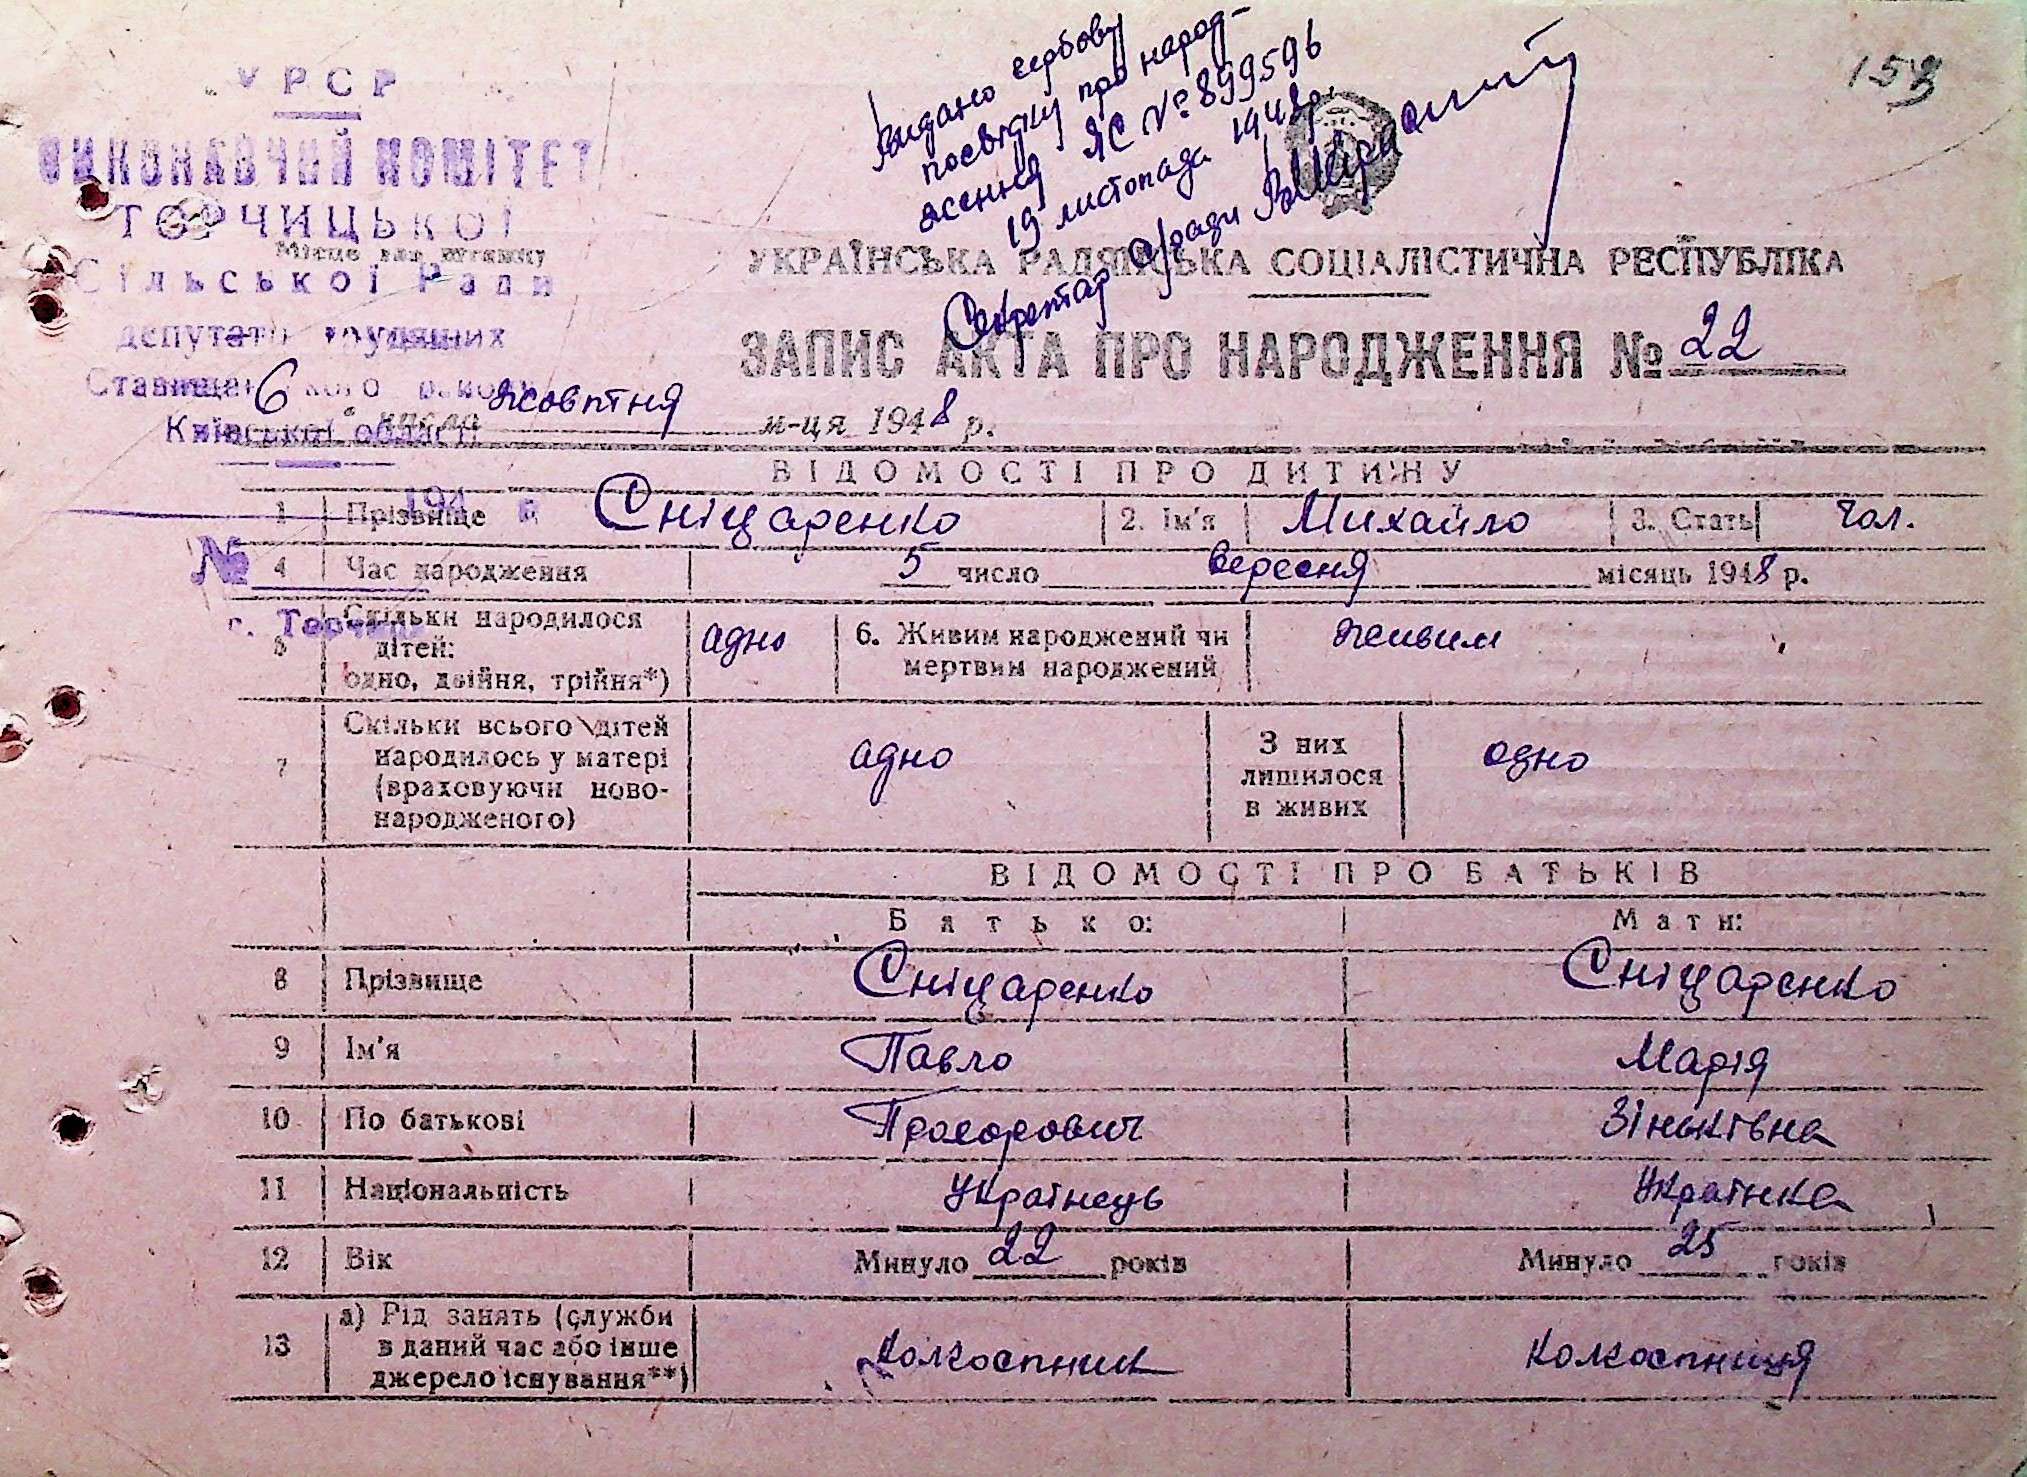 153
Видано гербову
посвідку про народ-
ження ЯС № 899596
19 листопада 1948 р.
Секретар с/ради
УРСР
ВИКОНАВЧИЙ КОМІТЕТ
ТОРЧИЦЬКОЇ
Місце для штампу
Сільської Ради
депутатів трудящих
Ставищенського району
Київської області
194 р.
№
с. Торчиця
УКРАЇНСЬКА РАДЯНСЬКА СОЦІАЛІСТИЧНА РЕСПУБЛІКА
ЗАПИС АКТА ПРО НАРОДЖЕННЯ № 22
6 числа жовтня м-ця 1948 р.
ВІДОМОСТІ ПРО ДИТИНУ
1 Прізвище Сніцаренко 2. Ім'я Михайло 3. Стать Чол.
4 Час народження 5 число вересня місяць 1948 р.
5 Скільки народилося
дітей:
одно, двійня, трійня*) адно
6. Живим народжений чи
мертвим народжений живим
7 Скільки всього дітей
народилось у матері
(враховуючи ново-
народженого) адно
З них
лишилося
в живих одно
ВІДОМОСТІ ПРО БАТЬКІВ
Батько: Мати:
8 Прізвище Сніцаренко Сніцаренко
9 Ім'я Павло Марія
10 По батькові Прохорович Зіньківна
11 Національність Українець Українка
12 Вік Минуло 22 років Минуло 25 років
13 а) Рід занять (служби
в даний час або інше
джерело існування**) Колхоспник Колхоспниця